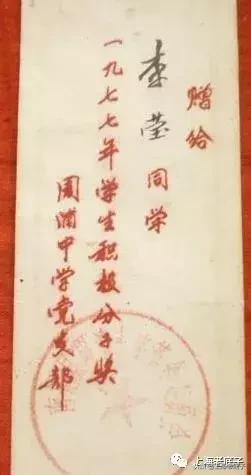 赠给
李莹同学
一九七七年学生积极分子奖
周浦中学党支部
上海老底子